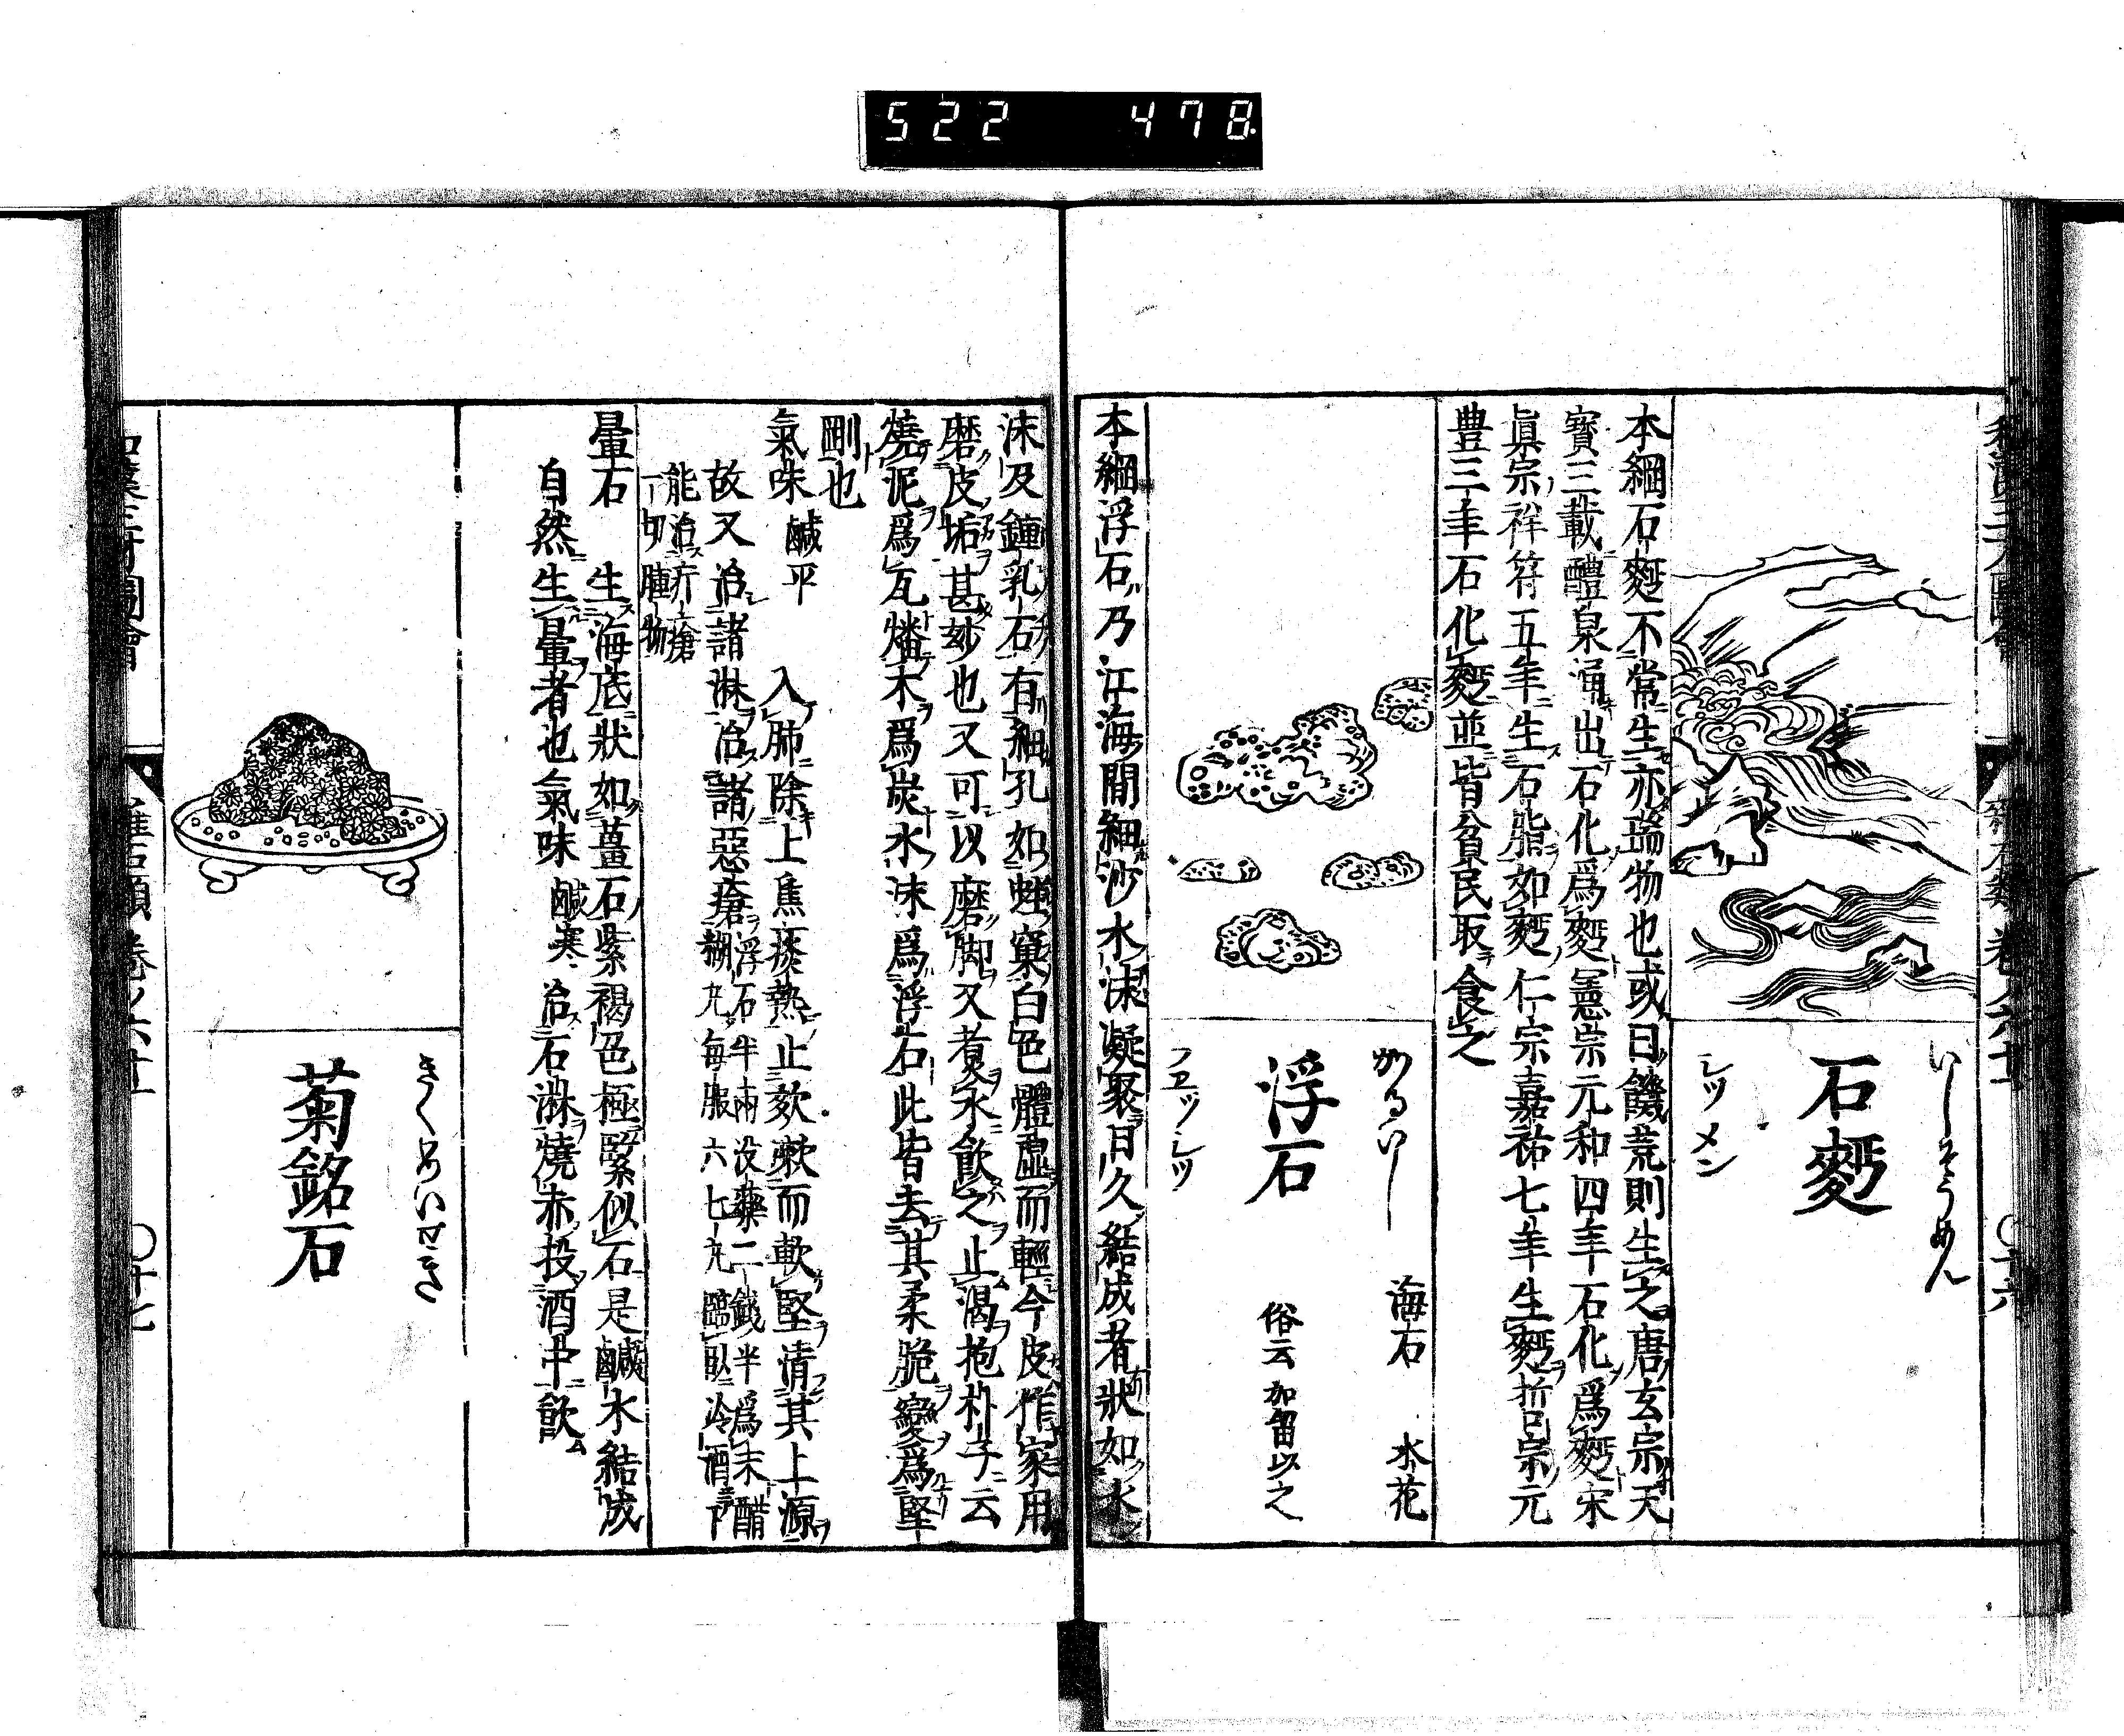 522 478
いしそうめん
石麪
シツメン
本綱石麪不常生亦瑞物也或曰饑荒則生之唐玄宗天
寳三載醴泉涌出石化爲麪憲宗元和四年石化爲麪宋
眞宗祥符五年生石脂如麪仁宗嘉祐七年生麪哲宗元
豊三年石化麪並皆貧民取食之
かるいし 海石 水花
浮石 俗云加留以之
フエツシツ
本綱浮石乃江海間細沙水沫凝聚日久結成者狀如水
沫及鍾乳石有細孔如蛀窠白色體虛而輕今皮作家用
磨皮垢甚妙也又可以磨脚又煮水飮之止渴抱朴子云
燒泥爲瓦燔木爲炭水沫爲浮石此皆去其柔脆變爲堅
剛也
氣味鹹平 入肺除上焦痰熱止欬嗽而軟堅清其上源
故又治諸淋治諸惡瘡浮石半兩没藥二錢半爲末醋
糊丸每服六七丸臨臥冷酒下
能治疔瘡
一切腫物
暈石 生海底狀如薑石紫褐色極緊似石是鹹水結成
自然生暈者也氣味鹹寒治石淋燒赤投酒中飮
きくめいせき
菊銘石